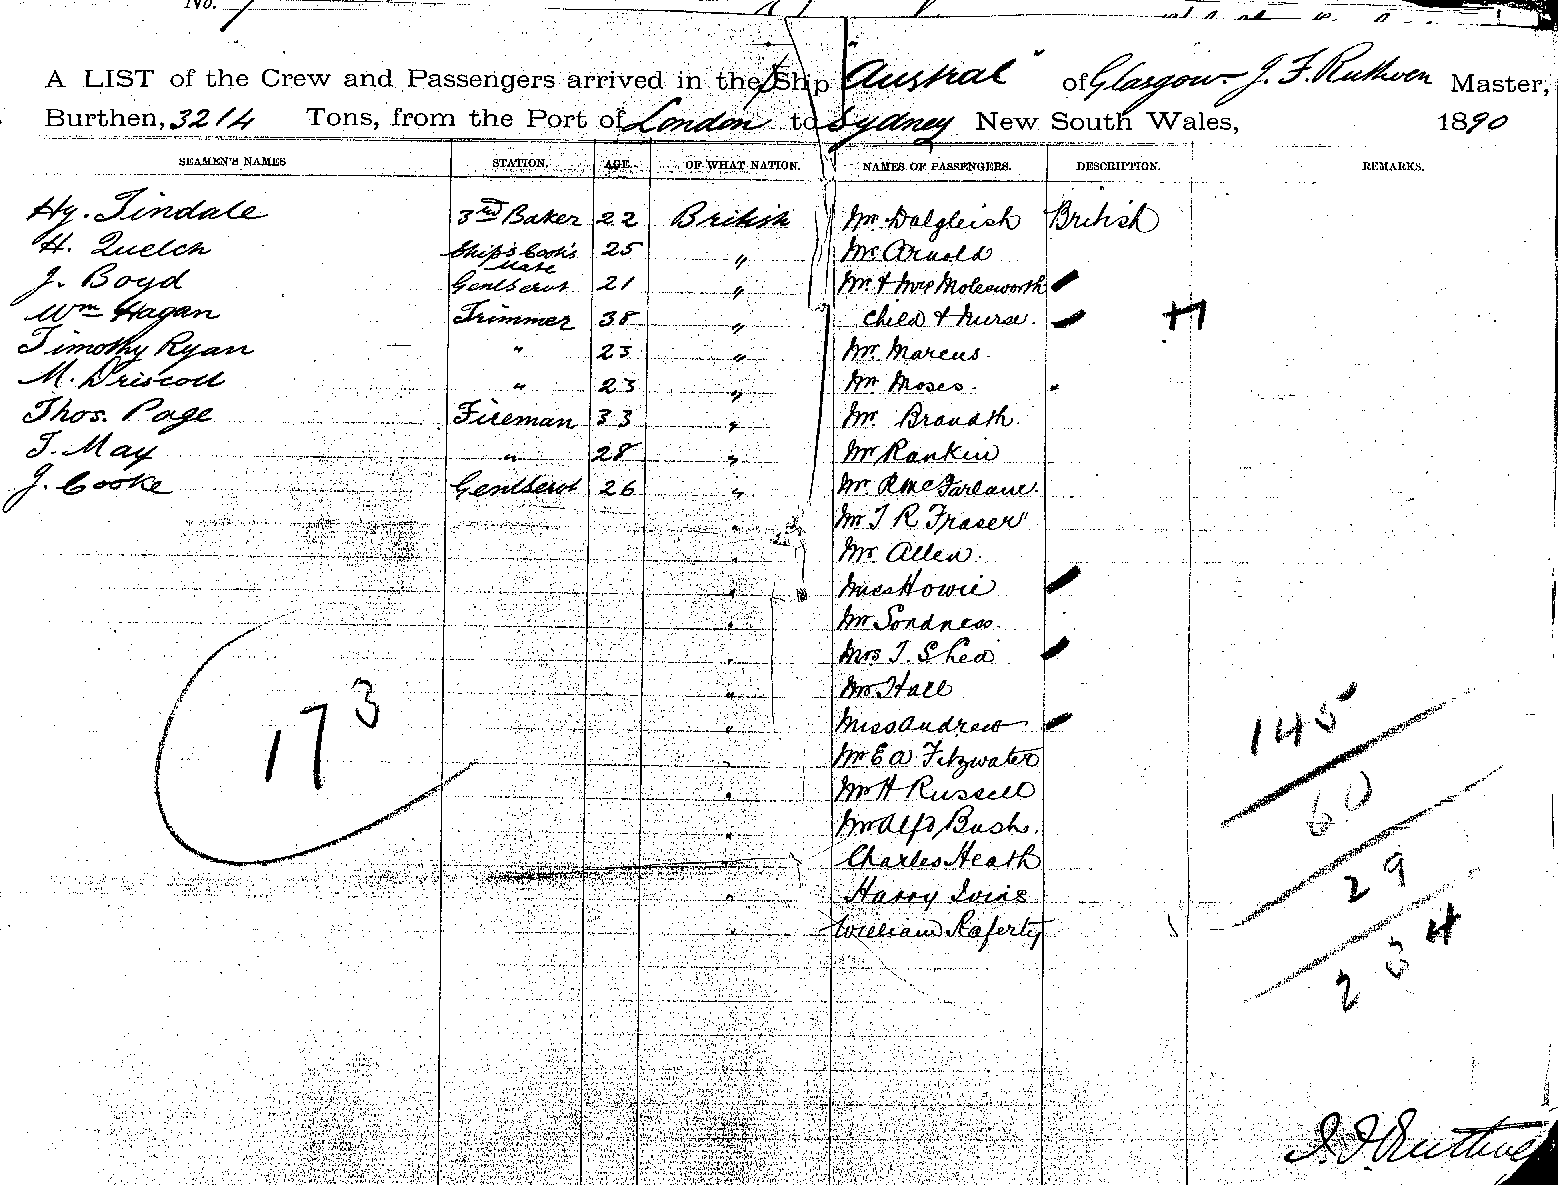 No.
A LIST of the Crew and Passengers arrived in the Ship "Austral" of Glasgow J. F. Ruthven Master,
Burthen, 3214 Tons, from the Port of London to Sydney New South Wales, 1890
SEAMEN'S NAMES STATION. AGE. OF WHAT NATION. NAMES OF PASSENGERS. DESCRIPTION. REMARKS.
Hy. Tindale 3rd Baker 22 British Mr Dalgleish British
H. Quelch Ship's Cook's Mate 25 " Mr Arnold
J. Boyd Genl Servt 21 " Mr & Mrs Molesworth
Wm Hagan Trimmer 38 " Child & Nurse.
Timothy Ryan " 23 " Mr Marcus
M. Driscoll " 23 " Mr Moses.
Thos. Page Fireman 33 " Mr. Brandth
T. May " 28 " Mr Rankin
J. Cooke Genl Servt 26 " Mr R McFarlane.
" Mr T R Fraser
" Mr Allen.
" Miss Howie
" Mr Sondness.
" Mrs T. Shea
" Mr Hall
" Miss Andrew
" Mr E A Fitzwater
" Mr H Russell
" Mr Alfd Bush.
" Charles Heath
" Harry Ivins
" William Raferty
173
145
60
29
234
J. F. Ruthven